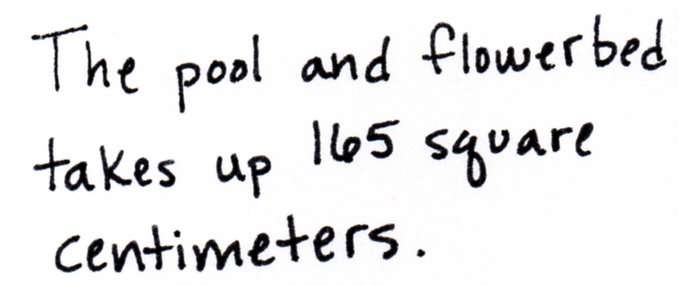 The pool and flowerbed
takes up 165 square
centimeters.